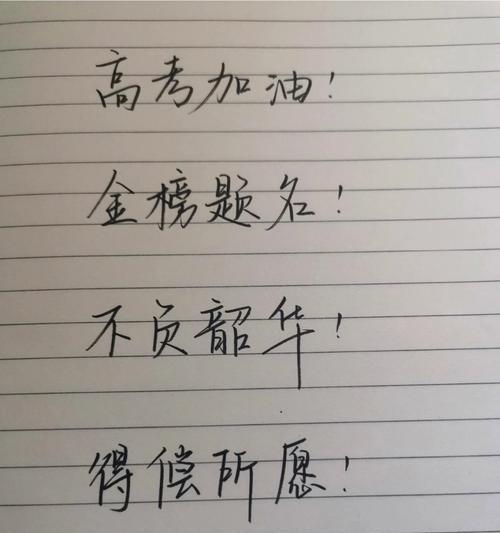 高考加油!
金榜题名!
不负韶华!
得偿所愿!